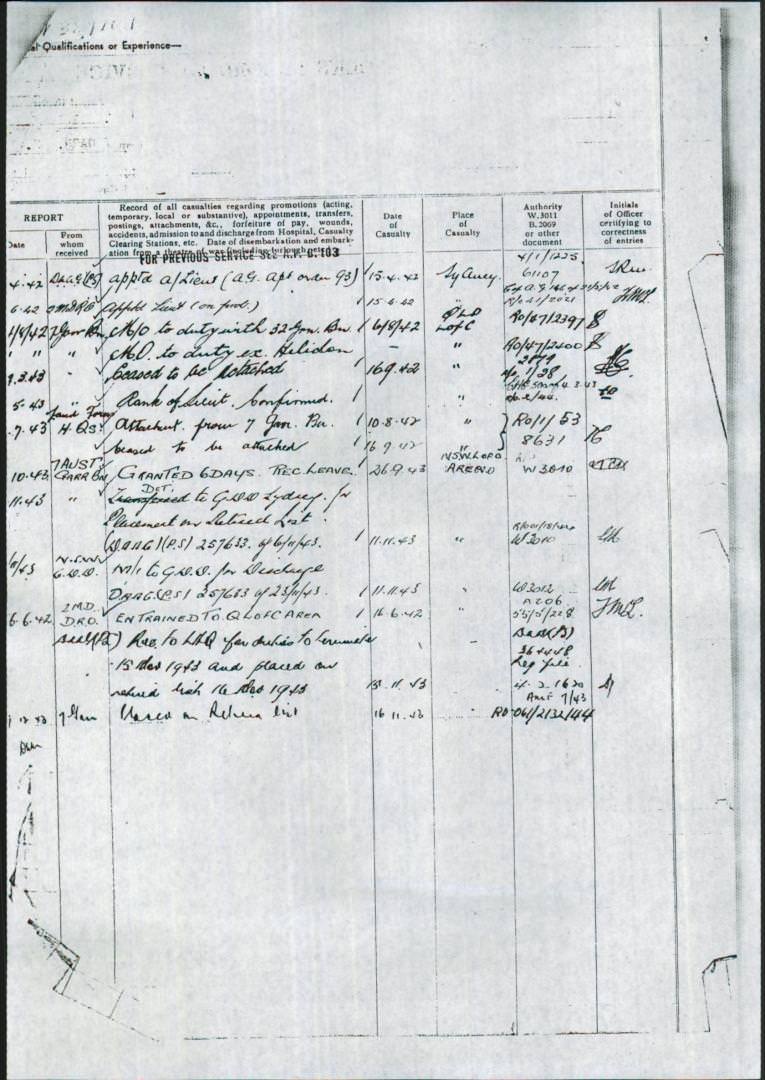 al Qualifications or Experience—
REPORT
Date
From whom received
Record of all casualties regarding promotions (acting, temporary, local or substantive), appointments, transfers, postings, attachments, &c., forfeiture of pay, wounds, accidents, admission to and discharge from Hospital, Casualty Clearing Stations, etc. Date of disembarkation and embarkation from a theatre of war (including furlough, etc.)
Date of Casualty
Place of Casualty
Authority W.3011 B.2069 or other document
Initials of Officer certifying to correctness of entries
FOR PREVIOUS SERVICE SEE A.F. B. 103
4/1/1225
4.42 apptd a/Lieut (A.G. apt order 93) 15.4.42 Sydney 61107
6.42 Appt Lieut (on prob.) 15.4.42
1/8/42 7 Gar Bn M/O to duty with 32 Gar. Bn 6/8/42 QLD LofC RO/47/2397
" " M.O. to duty ex Helidon — " RO/47/2400
7.3.43 " Ceased to be attached 16 9.42 " 1/28
5.43 " Rank of Lieut. Confirmed. "
.7.43 Land Forces H.QS. Attachmt. from 7 Gar. Bn. 10.8.42 " RO/1/53
ceased to be attached 16 9.42 " 8631
10.43 7 AUST GARR BN GRANTED 6 DAYS REC. LEAVE. 26.9.43 N.S.W. L of C AREA W 3010
11.43 " Transferred DET. to G.D.D Sydney for
Placement on Retired List.
(D.A.A.G)(P.S) 257633 of 6/11/43. 11.11.43 " W3010
/11/43 N.S.W. G.D.D. M/I to G.D.D. for Discharge
DAAG(PS) 257633 of 23/11/43. 11.11.43 " W3012
6.6.42 2 MD. D.R.O. ENTRAINED TO Q L OF C AREA 16.6.42 " A206 55/5/228
for duties to terminate
15 1943 and placed on 36448
retired list 16 1943 15.11.43
12 43 7 Garr Placed on Retired list 16 11.43 RO 061/2132/44